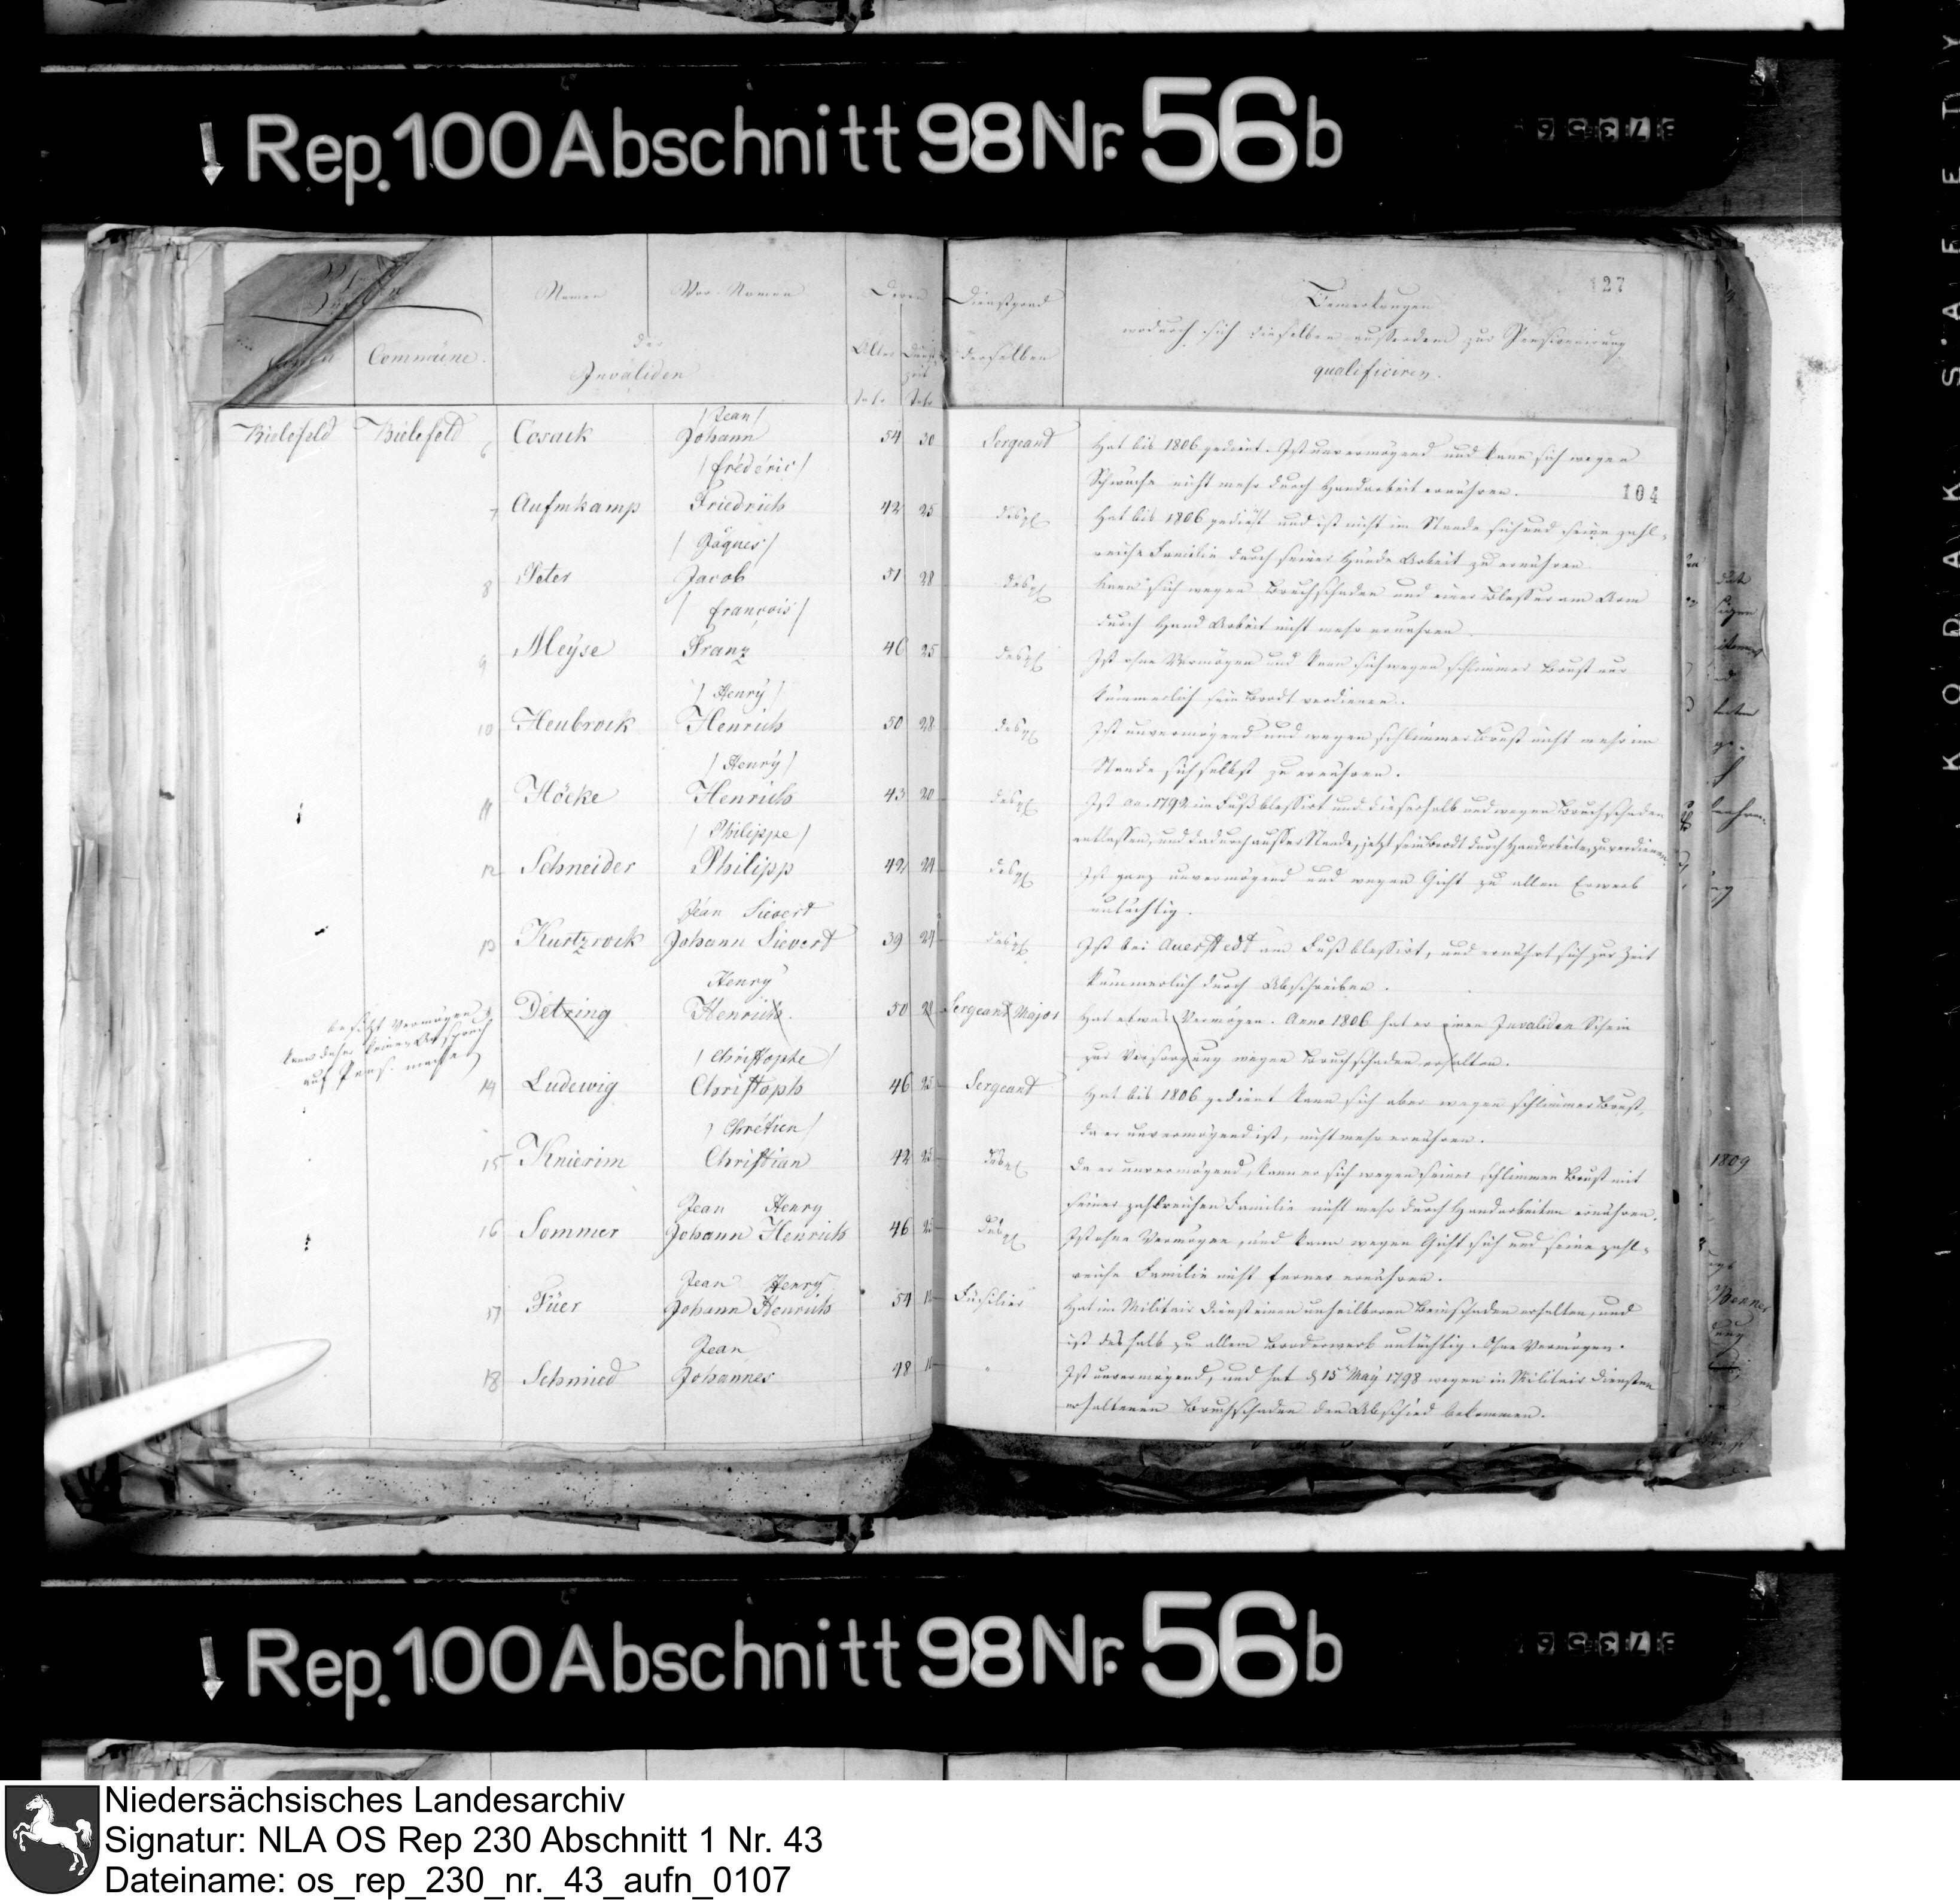 Rep. 100 Abschnitt 98 Nr. 56b
127
Namen Vor-Namen Deren Dienstgrad Bemerkungen
der
wodurch sich dieselben ausserdem zur Pensionirung
Canton Commüne. Invaliden Alter Dienstzeit derselben qualificiren.
Jahr Jahr
/Jean/
Bielefeld Bielefeld 6 Cosack Johann 54 30 Sergeant Hat bis 1806 gedient. Ist unvermögend und kann sich wegen
/frédéric/ Schwäche nicht mehr durch Handarbeit ernähren. 104
7 Aufmkamp Friedrich 42 25 desgl Hat bis 1806 gedient und ist nicht im Stande sich und seine zahl-
/Jâques/ reiche Familie durch seiner Hände Arbeit zu ernähren.
8 Peter Jacob 51 28 desgl Kann sich wegen Bruchschaden und einer Blessur am Arm
/françois/ durch Hand Arbeit nicht mehr ernähren.
9 Meÿse Franz 46 25 desgl Ist ohne Vermögen und kann sich wegen schlimmer Brust nur
/Henrÿ/ kümmerlich sein Brodt verdienen.
10 Heubrock Henrich 50 28 desgl Ist unvermögend und wegen schlimmer Brust nicht mehr im
/Henrÿ/ Stande sich selbst zu ernähren.
11 Höcke Henrich 43 20 desgl Ist ao. 1792 im Fuß blessirt und dieserhalb und wegen Bruchschaden
/Philippe/ entlassen, und dadurch ausser Stande, jetzt sein Brodt durch Handarbeiten zu verdienen.
12 Schneider Philipp 42 24 desgl Ist ganz unvermögend und wegen Gicht zu allen Erwerb
Jean Sievert untüchtig.
13 Kurtzrock Johann Sievert 39 24 desgl Ist bei Auerstedt am Fuß blessirt, und ernährt sich zur Zeit
Henrÿ kümmerlich durch Abschreiben.
besitzt Vermögen Detring Henrich. 50 Sergeant Major Hat etwas Vermögen. Anno 1806 hat er einen Invaliden Schein
kann daher keinen Anspruch
auf Pens. machen
/Christophe/ zur Versorgung wegen Bruchschaden erhalten.
14 Ludewig Christoph 46 25 Sergeant Hat bis 1806 gedient kann sich aber wegen schlimmer Brust,
/Chrétien/ da er unvermögend ist, nicht mehr ernähren.
15 Knierim Christian 42 23 desgl Da er unvermögend, kann er sich wegen seiner schlimmen Brust mit
Jean Henry seiner zahlreichen Familie nicht mehr durch Handarbeiten ernähren.
16 Sommer Johann Henrich 46 25 desgl Ist ohne Vermögen, und kann wegen Gicht sich und seine zahl-
Jean Henrÿ reiche Familie nicht ferner ernähren.
17 Füer Johann Henrich 54 Füsilier Hat im Militair Dienst einen unheilbaren Beinschaden erhalten, und
Jean ist deshalb zu allem Broderwerb untüchtig. Ohne Vermögen.
18 Schmied Johannes 48 Ist unvermögend, und hat d 15 Maÿ 1798 wegen in Militair Diensten
erhaltenen Bruchschaden den Abschied bekommen.
1809
KODAK SAFETY
Rep. 100 Abschnitt 98 Nr. 56b
Niedersächsisches Landesarchiv
Signatur: NLA OS Rep 230 Abschnitt 1 Nr. 43
Dateiname: os_rep_230_nr._43_aufn_0107